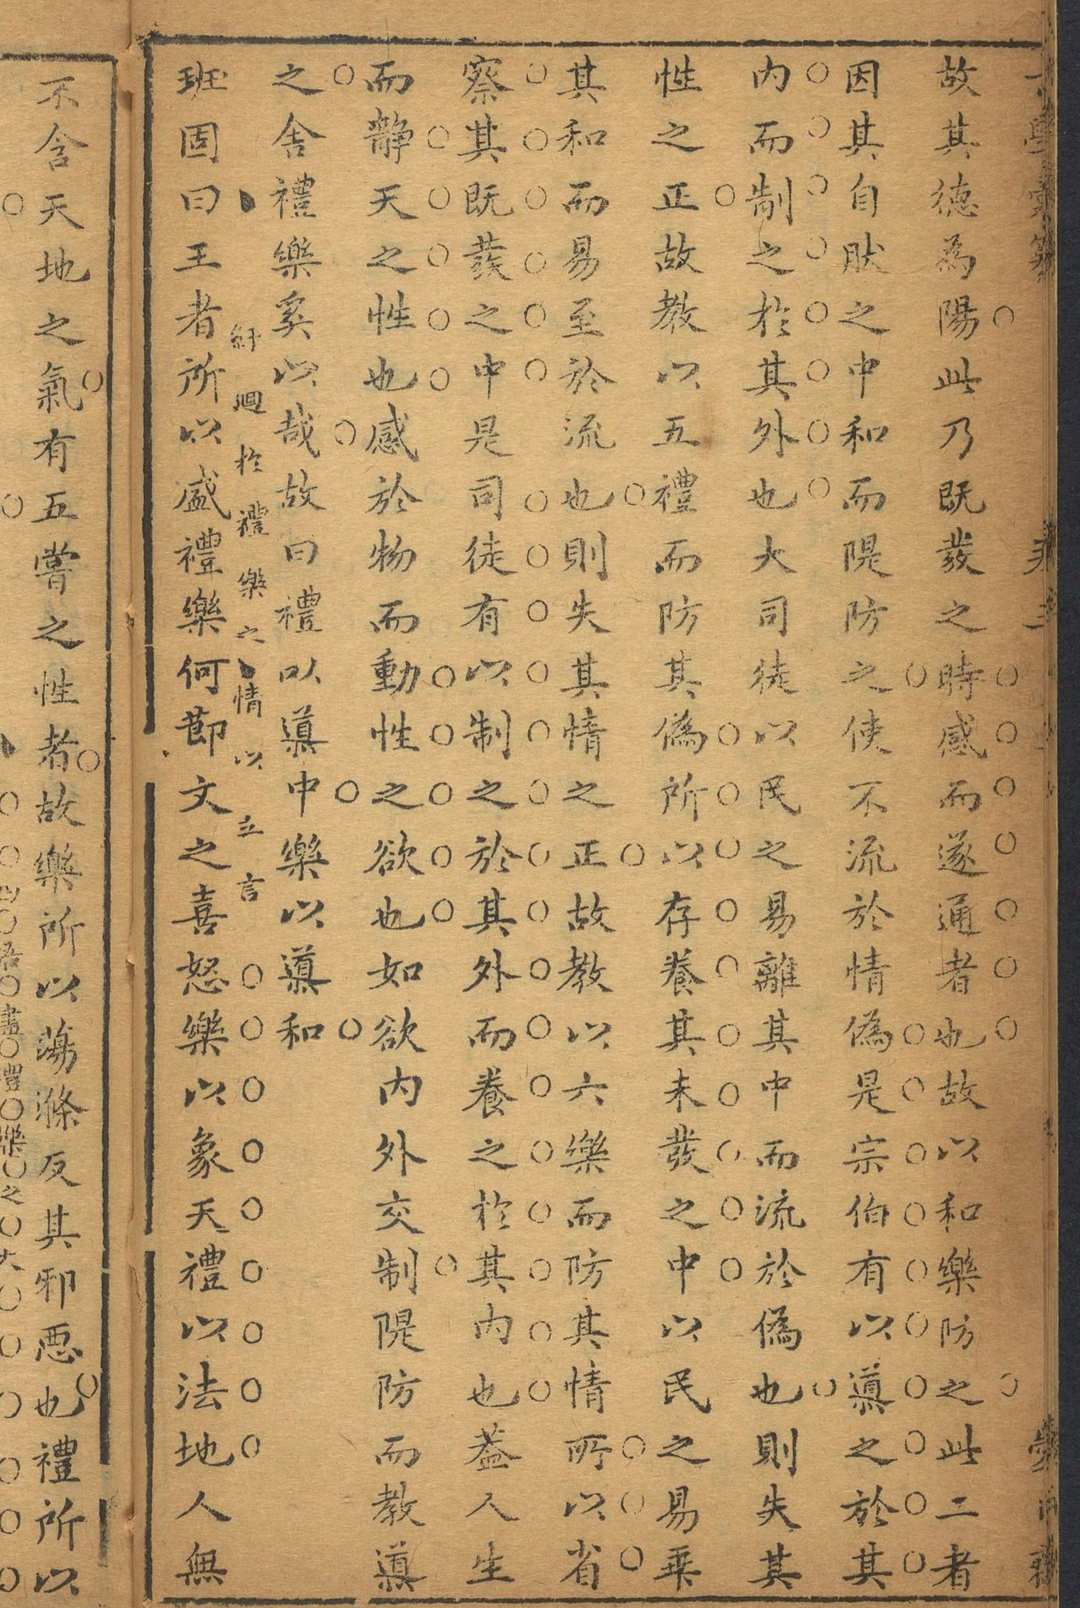 故其德為陽此乃既發之時感而遂通者也故以和樂防之此二者
因其自肰之中和而隄防之使不流於情偽是宗伯有以導之於其
內而制之於其外也大司徒以民之易離其中而流於偽也則失其
性之正故教以五禮而防其偽所以存養其未發之中以民之易乘
其和而易至於流也則失其情之正故教以六樂而防其情所以省
察其既發之中是司徒有以制之於其外而養之於其內也葢人生
而靜天之性也感於物而動性之欲也如欲內外交制隄防而教導
之舍禮樂奚以哉故曰禮以導中樂以導和
紆迴於禮樂之情以立言
班固曰王者所以盛禮樂何節文之喜怒樂以象天禮以法地人無
不含天地之氣有五嘗之性者故樂所以蕩滌反其邪惡也禮所以